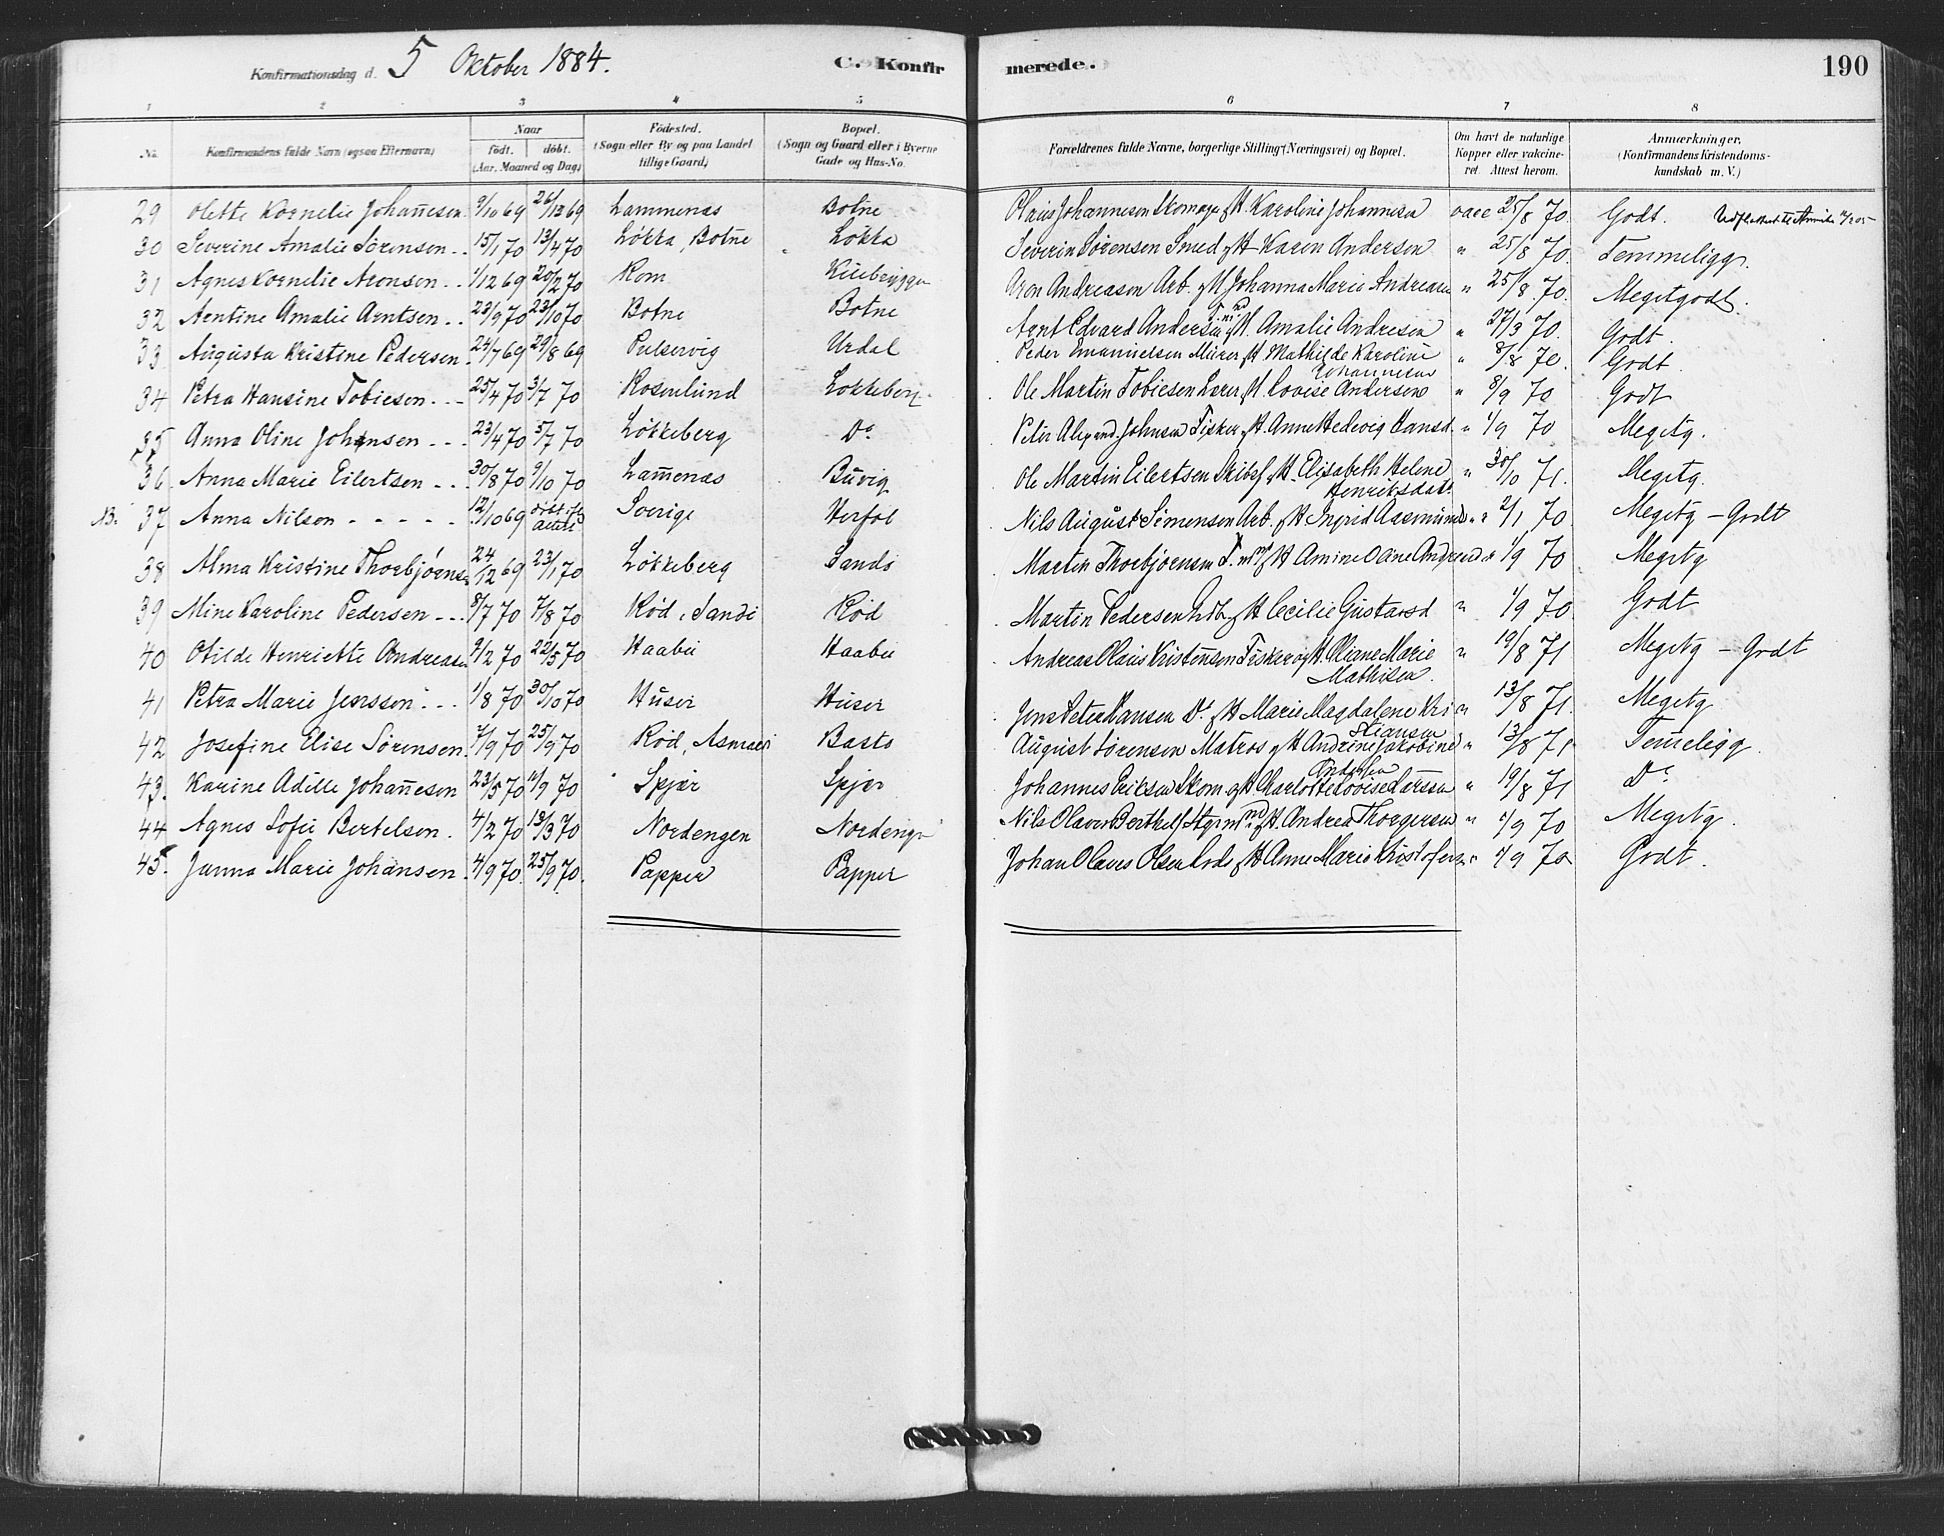 Konfirmationsdag d. 5 Oktober 1884. C. Konfir merede. 190
1 2 3 4 5 6 7 8
No. Konfirmandens fulde Navn (ogsaa Efternavn) Naar født. døbt. (Aar, Maaned og Dag) Fødested. (Sogn eller By og paa Landet tillige Gaard) Bopæl. (Sogn og Gaard eller i Byerne Gade og Hus-No. Forældrenes fulde Navne, borgerlige Stilling (Næringsvei) og Bopæl. Om havt de naturlige Kopper eller vakcineret. Attest herom. Anmærkninger. (Konfirmandens Kristendomskundskab m. V.)
29 Olette Kornelie Johannesen 9/10 69 26/12 69 Lammenæs Botne Olaus Johannesen Skomager & H. Karoline Johannesen vacc 25/8 70. Godt.
30 Severine Amalie Sørensen 15/1 70 13/4 70 Løkka, Botne Løkka Severin Sørensen Smed & H. Karen Andersen " 25/8 70. Temmeligg.
31 Agnes Kornelie Aronsen 1/12 69 20/2 70 Rom Kilebryggen Aron Andreasen Arb. & H. Johanna Marie Andreasen " 25/8 70. Megetgodt.
32 Arntine Amalie Arntsen 28/9 70 23/10 70 Botne Botne Arnt Edvard Andersen & H. Amalie Andresen " 27/3 70. Godt.
33 Augusta Kristine Pedersen 24/7 69 29/8 69 Pulservig Urdal Peder Emanuelsen Murer & H. Mathilde Karoline Johannesen " 8/8 70. Godt.
34 Petra Hansine Tobiesen 25/4 70 3/7 70 Rosenlund Løkkeberg Ole Martin Tobiesen Lærer & H. Lovise Andersen " 8/9 70 Godt
35 Anna Oline Johnsen 23/4 70 5/7 70 Løkkeberg Do Peter Alexand. Johnsen Fisker & H. Anne Hedevig Hansd. " 1/9 70 Megetg.
36 Anna Marie Eilertsen 30/8 70 9/10 70 Lammenæs Buvig Ole Martin Eilertsen Skibsf & H. Elisabeth Helene Henriksdat. " 30/10 71. Megetg.
NB. 37 Anna Nilsen 12/10 69 Sverige Herføl Nils August Simensen Arb. & H. Ingrid Aasmunds " 2/1 70. Megetg – Godt
38 Alma Kristine Thorbjørnsen 24/12 69 23/1 70 Løkkeberg Sandø Martin Thorbjørnsen & H. Amine Oline Andresd " 1/9 70 Megetg
39 Mine Karoline Pedersen 8/7 70 7/8 70 Rød, Sandø Rød Martin Pedersen & H. Cecilie Gustavsd " 1/9 70. Godt
40 Otilde Henriette Andreasen 9/2 70 22/5 70 Haabu Haabu Andreas Olaus Kristensen Fisker & H. Oliane Marie Mathisen. " 19/8 71 Megetg – Godt
41 Petra Marie Jenssen 1/8 70 30/10 70 Huser Huser Jens Peter Hansen Do & H. Marie Magdalene Kristiansen " 13/8 71. Megetg
42 Josefine Elise Sørensen. 7/9 70 25/9 70 Rød, Asmalø Bastø August Sørensen Matros & H. Andrine Jakobine Andersen " 13/8 71 Temeligg.
43. Karine Adille Johannesen 23/5 70 11/9 70 Spjær Spjær Johannes Eriksen Skom. & H. Charlotte Lovise Larssen " 19/8 71 Do
44 Agnes Sofie Bertelsen. 4/2 70 13/3 70 Nordengen Nordengen Nils Olaven Berthels & H. Andrea Thorgersen " 1/9 70 Megetg.
45. Janna Marie Johansen. 4/9 70. 25/9 70. Papper Papper Johan Olaus Olsen Lods & H. Anne Marie Kristofersen " 1/9 70 Godt.